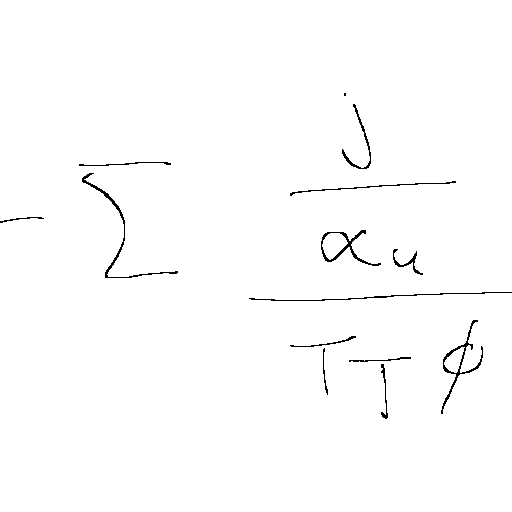 - \sum \frac{\frac{j}{\alpha_u}}{T_T \phi}